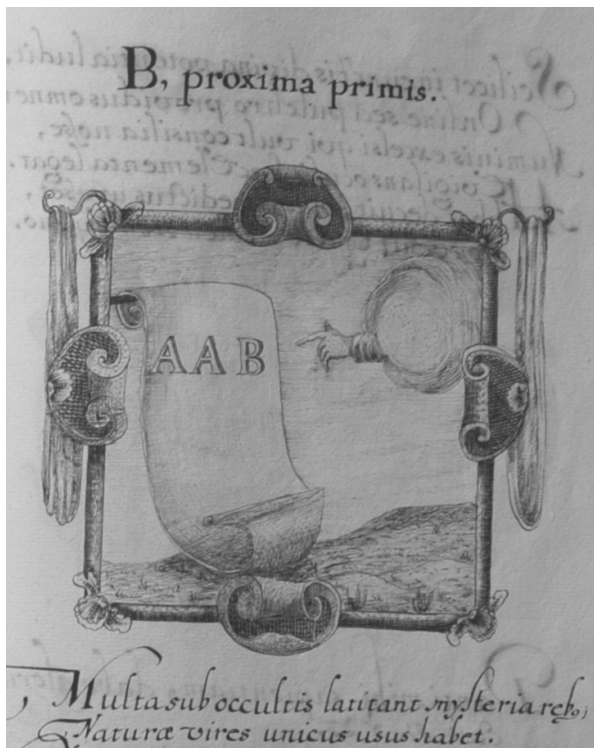 B, proxima primis.
AAB
Multa sub occultis latitant mysteria
Naturæ vires unicus usus habet.